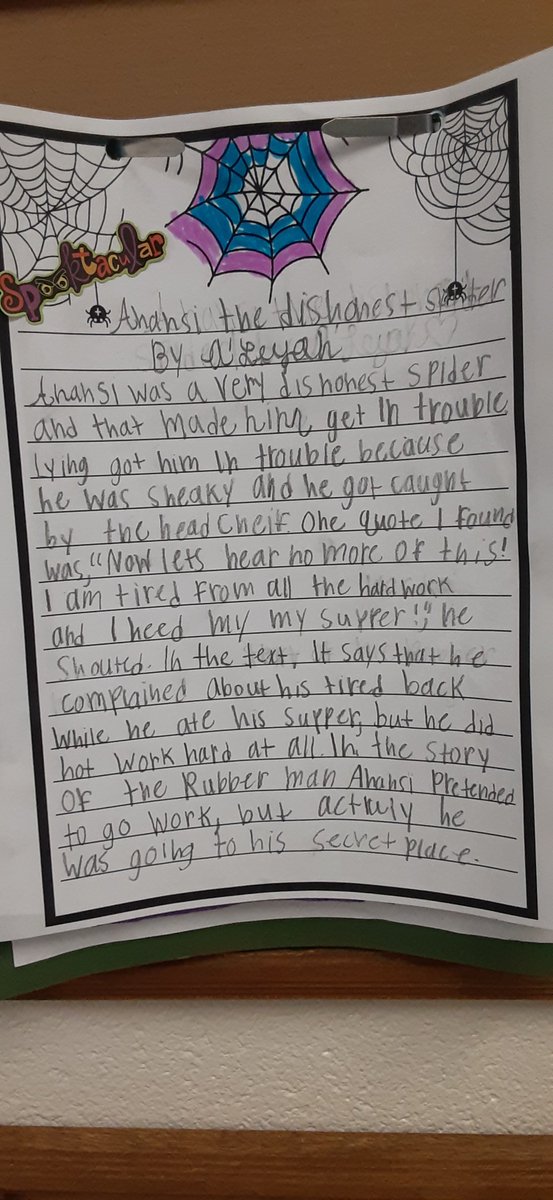 Spooktacular
Anansi the dishonest spider
By aleyah
Anansi was a very dishonest spider
and that made him get in trouble
lying got him in trouble because
he was sneaky and he got caught
by the head cheif. One quote I found
was, "Now lets hear no more of this!
I am tired from all the hard work
and I need my my supper!", he
shouted. In the text, it says that he
complained about his tired back
while he ate his supper, but he did
not work hard at all. In the story
of the Rubber man Anansi pretended
to go work, but actruly he
was going to his secret place.